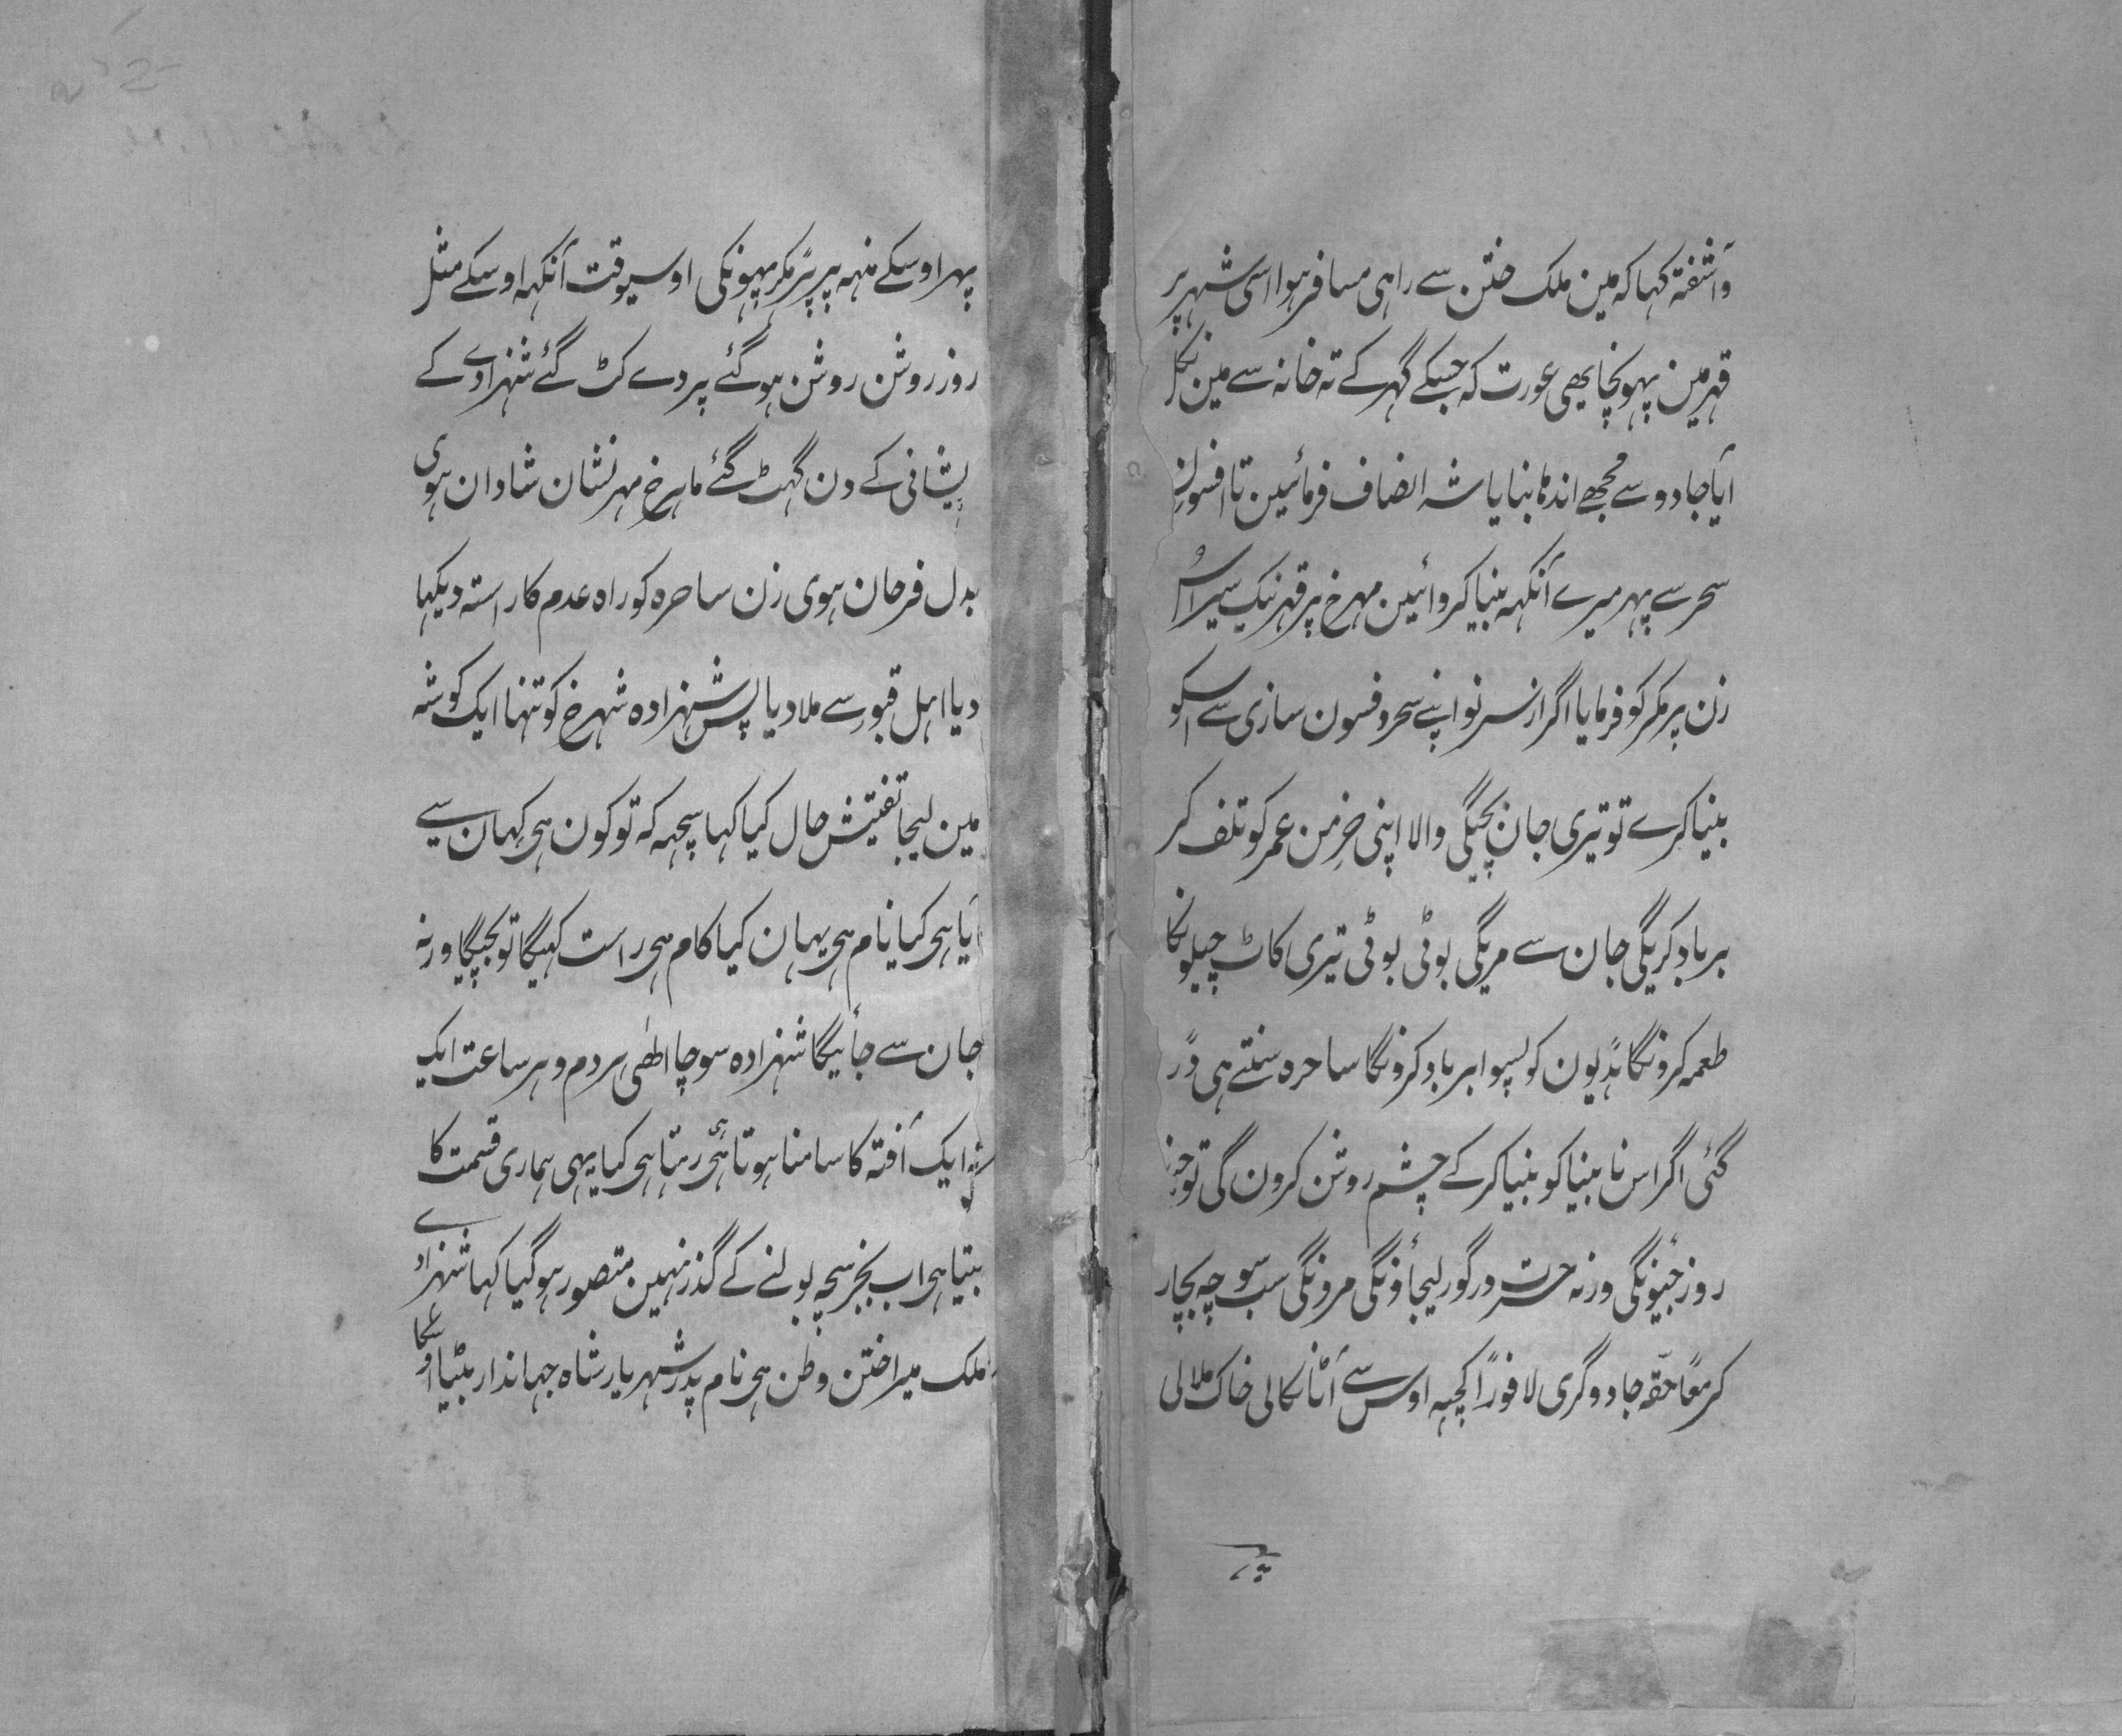 وآشفتہ کہا کہ مین ملک ختن سے راہی مسافر ہوا اسی شہر پر
قہر مین پہونچا یہی عورت کہ جسکے گہر کے تہ خانہ سے مین نکل
آیا جادو سے مجھے اندہا بنایا شہ انصاف فرمائین تا افسون
سحر سے پہر میرے آنکہہ بینا کروائین مہرخ پر قہر نیک سیر اُس
زن پر مکر کو فرمایا اگر از سر نو اپنے سحر و فسون سازی سے اسکو
بینا کرے تو تیری جان بچیگی والا اپنی خرمن عمر کو تلف کر
برباد کریگی جان سے مریگی بوٹی بوٹی تیری کاٹ چیلونکا
طعمہ کرونگا ہڈیون کو پسوا برباد کرونگا ساحرہ سنتے ہی ڈر
گئی اگر اس نا بینا کو بینا کر کے چشم روشن کرون گی تو چند
روز جیونگی ورنہ حسرت در گور لیجاؤنگی مرونگی سب سوچہ بچار
کر معًا حقہ جادوگری لا فورًا کچہہ اوس سے آٹا نکالی خاک ملالی
پہر
پہر اوسکے منہہ پر پڑ مکر پہونکی اوسیوقت آنکہہ اوسکے مثل
روز روشن روشن ہو گئے پردے کٹ گئے شہزادے کے
پشانی کے دن گہٹ گئے ماہرخ مہر نشان شادان ہوی
بدل فرحان ہوی زن ساحرہ کو راہ عدم کا راستہ دیکہا
دیا اہل قبور سے ملا دیا پس شہزادہ شہرخ کو تنہا ایک گوشہ
مین لیجا تفتیش حال کیا کہا سچہہ کہ تو کون ہی کہان سے
آیا ہی کیا نام ہی یہان کیا کام ہی راست کہیگا تو بچیگا ورنہ
جان سے جائیگا شہزادہ سوچا الٰھی ہر دم و ہر ساعت ایک
ایک آفتہ کا سامنا ہوتا ہی رہتا ہی کیا یہی ہماری قسمت کا
بتیا ہی اب بخبر سچہ بولنے کے گذر نہین متصور ہو گیا کہا شہزادے
ملک میرا ختن وطن ہی نام پدر شہریار شاہ جہاندار بیٹیا